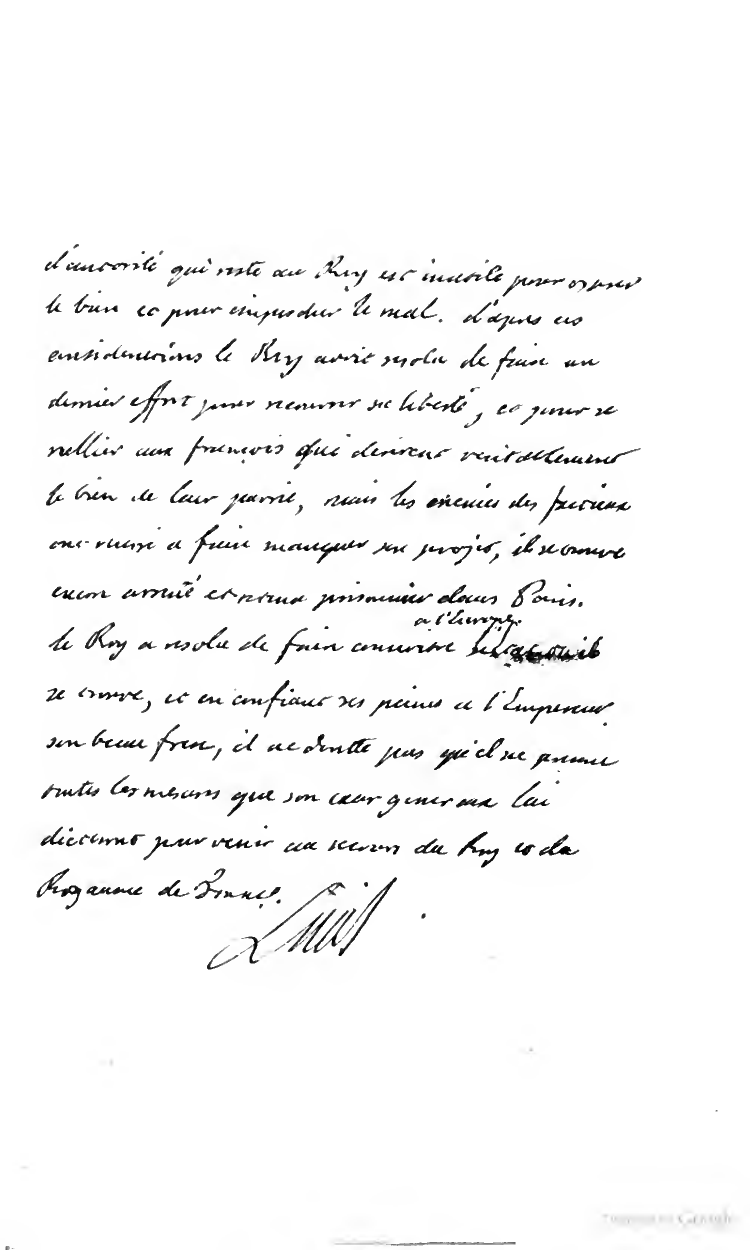 d'autorité qui reste au Roy est inutile pour operer
le bien et pour empescher le mal. d'après ces
considerations le Roy avoit resolu de faire un
dernier effort pour recouvrer sa liberté, et pour se
rallier aux françois qui desirent veritablement
le bien de leur patrie, mais les enemies des factieux
ont reussi a faire manquer son projet, il se trouve
encore arreté et retenu prisonnier dans Paris.
a l'Europe
le Roy a resolu de faire connoitre l'etat ou il
se trouve, et en confiant ses peines a l'Empereur
son beau frere, il ne doutte pas qu'il ne prenne
toutes les mesures que son cœur genereux lui
dictera pour venir au secours du Roy et du
Royaume de France.
Louis